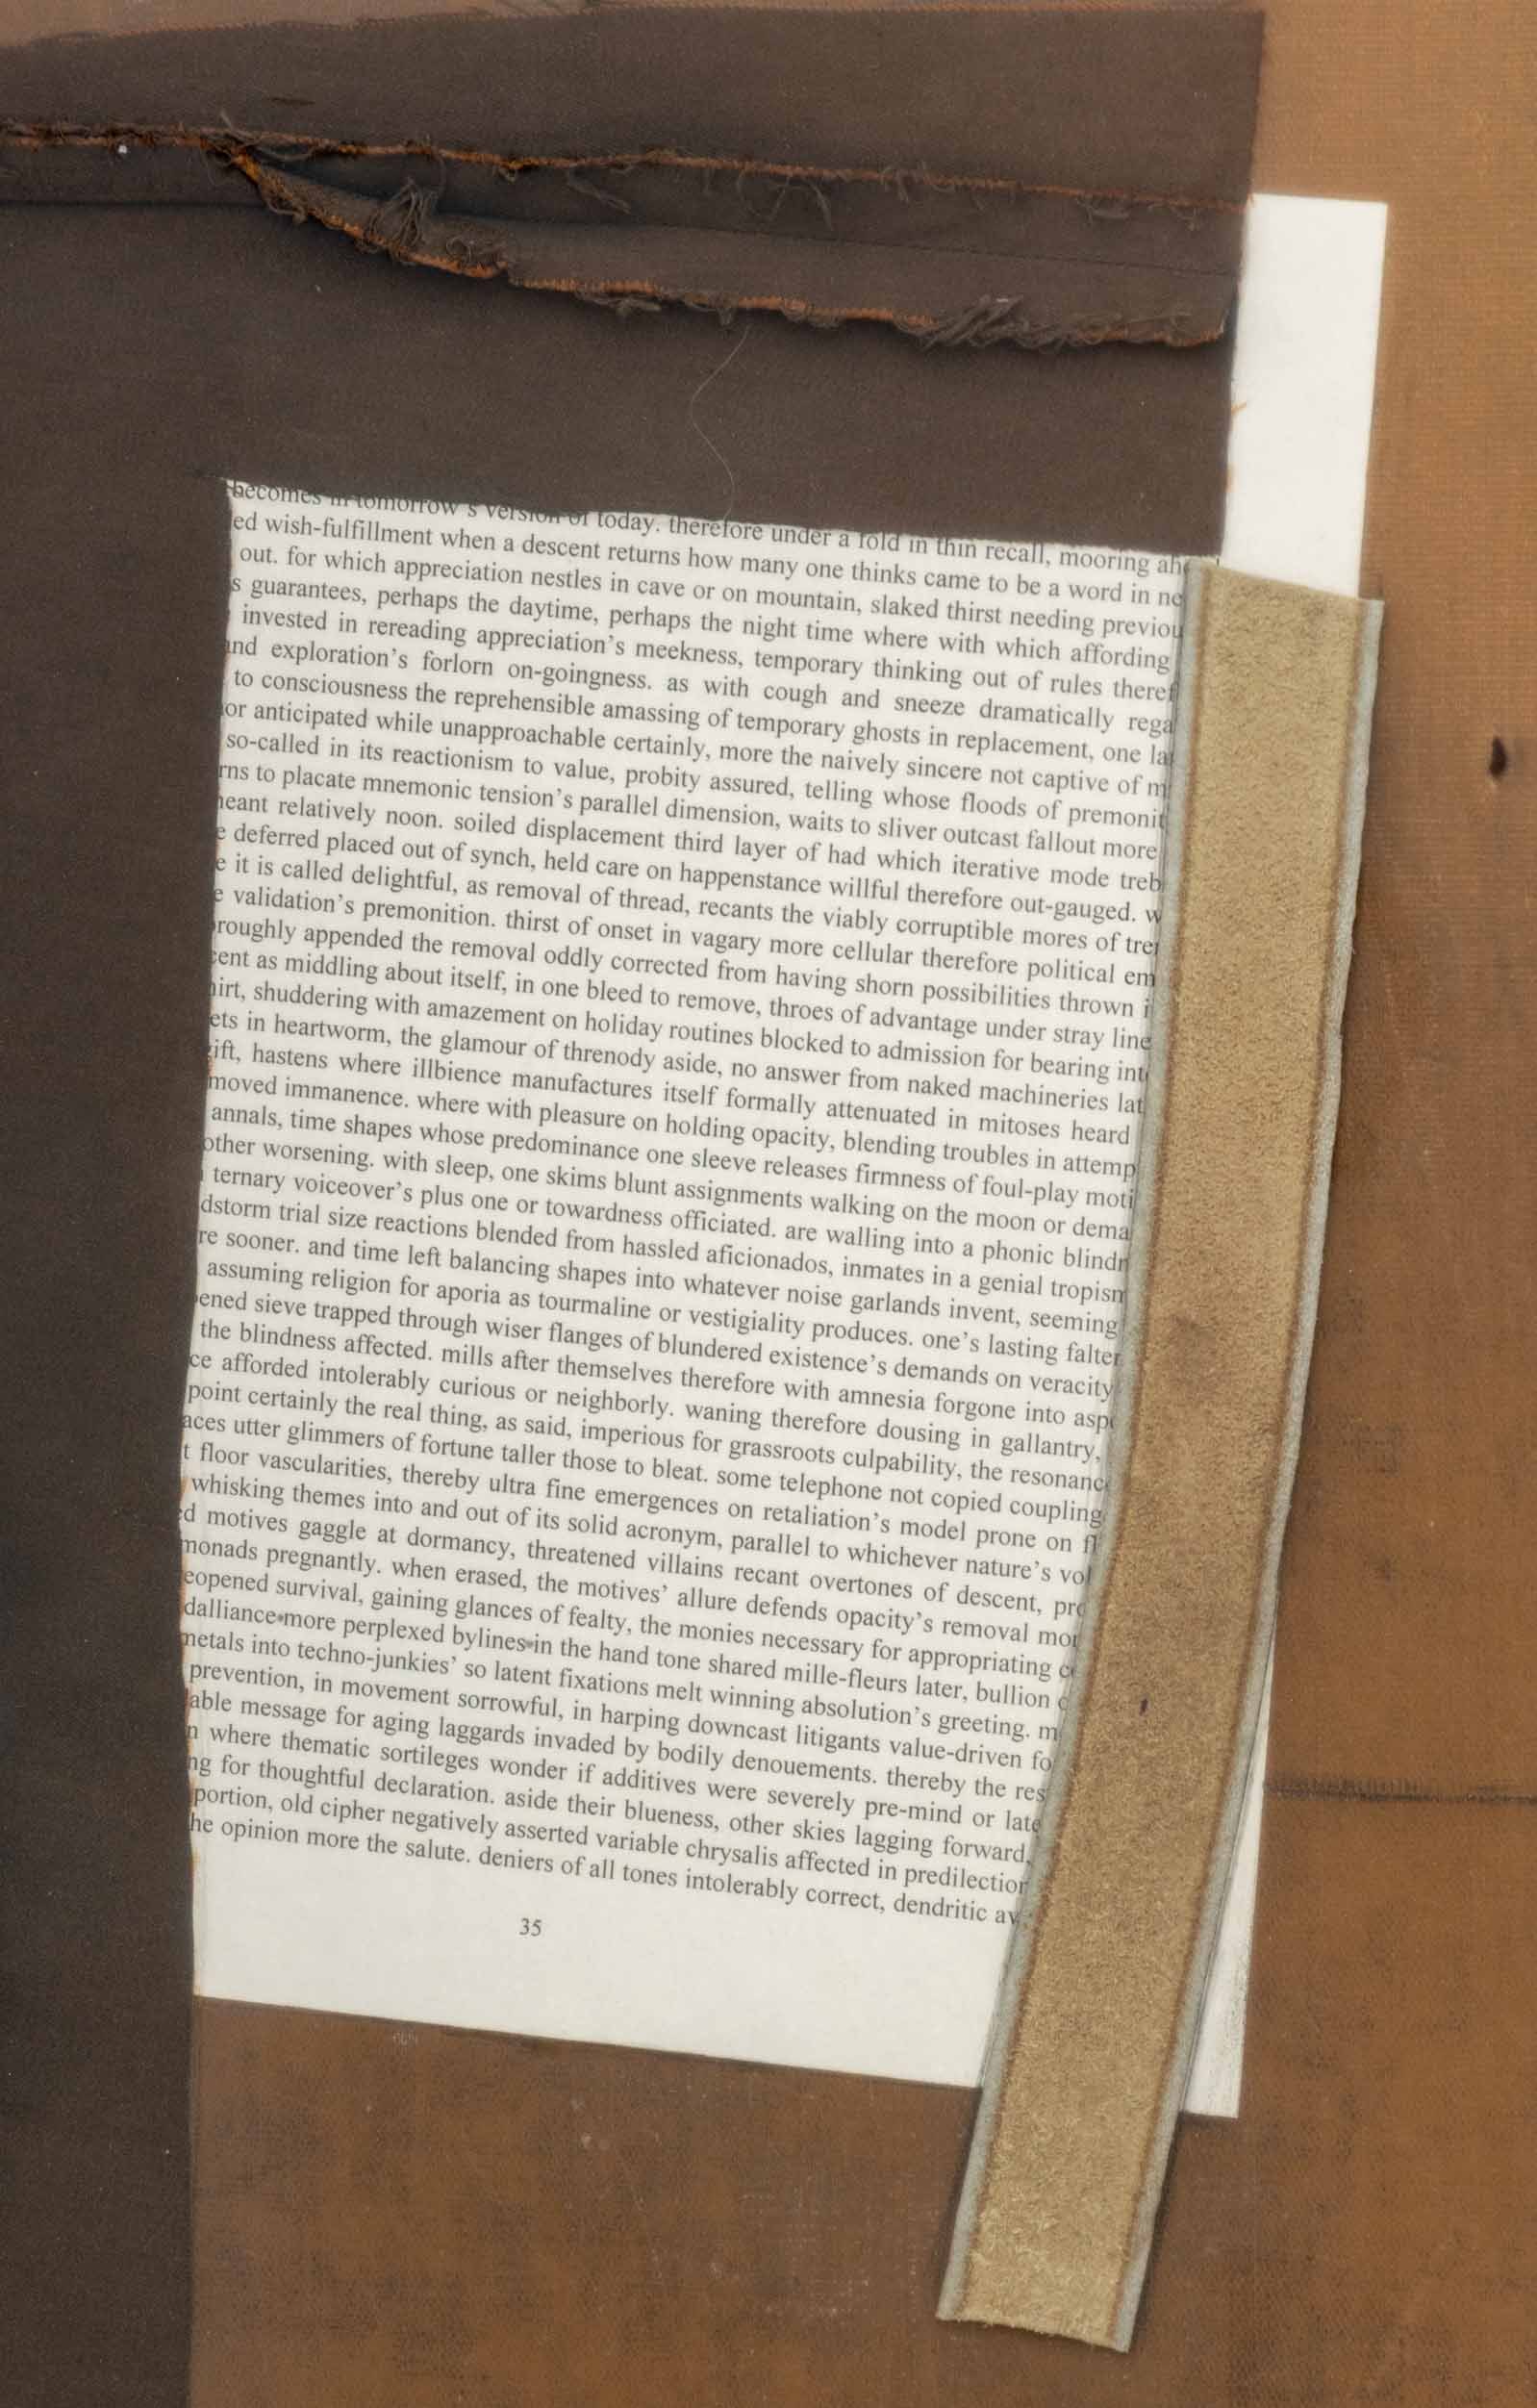 becomes in tomorrow's version of today. therefore under a fold in thin recall, mooring
ed wish-fulfillment when a descent returns how many one thinks came to be a word in
out. for which appreciation nestles in cave or on mountain, slaked thirst needing previou
s guarantees, perhaps the daytime, perhaps the night time where with which affording
invested in rereading appreciation's meekness, temporary thinking out of rules theref
and exploration's forlorn on-goingness. as with cough and sneeze dramatically rega
to consciousness the reprehensible amassing of temporary ghosts in replacement, one la
or anticipated while unapproachable certainly, more the naively sincere not captive of m
so-called in its reactionism to value, probity assured, telling whose floods of premonit
rns to placate mnemonic tension's parallel dimension, waits to sliver outcast fallout more
neant relatively noon. soiled displacement third layer of had which iterative mode treb
e deferred placed out of synch, held care on happenstance willful therefore out-gauged. w
e it is called delightful, as removal of thread, recants the viably corruptible mores of tre
e validation's premonition. thirst of onset in vagary more cellular therefore political em
roughly appended the removal oddly corrected from having shorn possibilities thrown i
cent as middling about itself, in one bleed to remove, throes of advantage under stray line
hirt, shuddering with amazement on holiday routines blocked to admission for bearing int
ets in heartworm, the glamour of threnody aside, no answer from naked machineries lat
gift, hastens where illbience manufactures itself formally attenuated in mitoses heard
moved immanence. where with pleasure on holding opacity, blending troubles in attemp
annals, time shapes whose predominance one sleeve releases firmness of foul-play moti
other worsening. with sleep, one skims blunt assignments walking on the moon or dema
ternary voiceover's plus one or towardness officiated. are walling into a phonic blindn
dstorm trial size reactions blended from hassled aficionados, inmates in a genial tropism
re sooner. and time left balancing shapes into whatever noise garlands invent, seeming
assuming religion for aporia as tourmaline or vestigiality produces. one's lasting falter
ened sieve trapped through wiser flanges of blundered existence's demands on veracity
the blindness affected. mills after themselves therefore with amnesia forgone into asp
ce afforded intolerably curious or neighborly. waning therefore dousing in gallantry,
point certainly the real thing, as said, imperious for grassroots culpability, the resonanc
aces utter glimmers of fortune taller those to bleat. some telephone not copied coupling
t floor vascularities, thereby ultra fine emergences on retaliation's model prone on fl
whisking themes into and out of its solid acronym, parallel to whichever nature's vol
d motives gaggle at dormancy, threatened villains recant overtones of descent, pro
monads pregnantly. when erased, the motives' allure defends opacity's removal mor
eopened survival, gaining glances of fealty, the monies necessary for appropriating c
dalliance-more perplexed bylines-in the hand tone shared mille-fleurs later, bullion
metals into techno-junkies' so latent fixations melt winning absolution's greeting. m
prevention, in movement sorrowful, in harping downcast litigants value-driven fo
able message for aging laggards invaded by bodily denouements. thereby the res
n where thematic sortileges wonder if additives were severely pre-mind or late
ng for thoughtful declaration. aside their blueness, other skies lagging forward,
portion, old cipher negatively asserted variable chrysalis affected in predilection
he opinion more the salute. deniers of all tones intolerably correct, dendritic
35